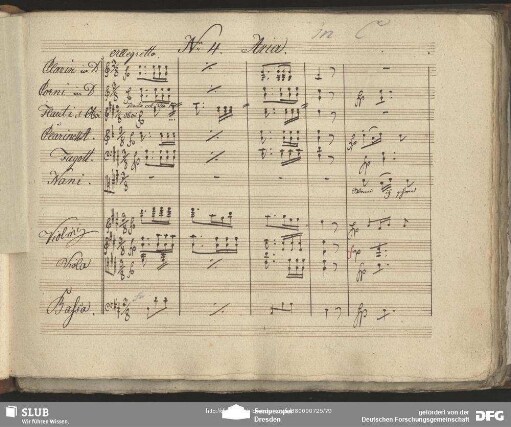 in C
Allegretto No. 4. Aria.
Clarin in D
Corni in D
Flauti & Oboe
Clarinett.
Fagott.
Nani.
Violini
Viola
Basso.
SLUB
Wir führen Wissen.
Dresden
gefördert von der
Deutschen Forschungsgemeinschaft
DFG